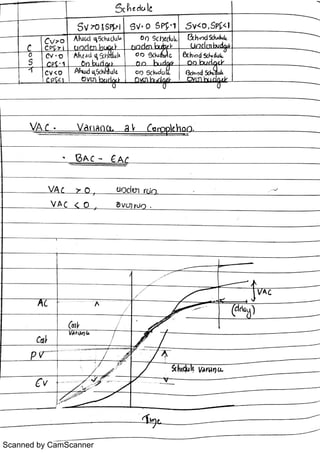 Schedule
SV>0 1 SPI>1 SV=0 SPI=1 SV<0, SPI<1
CV>0 Ahead of Schedule on Schedule Behind Schedule
C CPI>1 under budget under budget under budget
O CV=0 Ahead of Schedule on Schedule Behind Schedule
S CPI=1 On budget on budget on budget
T CV<0 Ahead of Schedule on Schedule Behind Schedule
CPI<1 Over budget Over budget Over budget
VAC. Variance at Completion.
• BAC - EAC
VAC > 0, under run
VAC < 0, overrun.
VAC
AC
(delay)
Cost
Variance
Cost
PV
Schedule Variance
EV
Time
Scanned by CamScanner